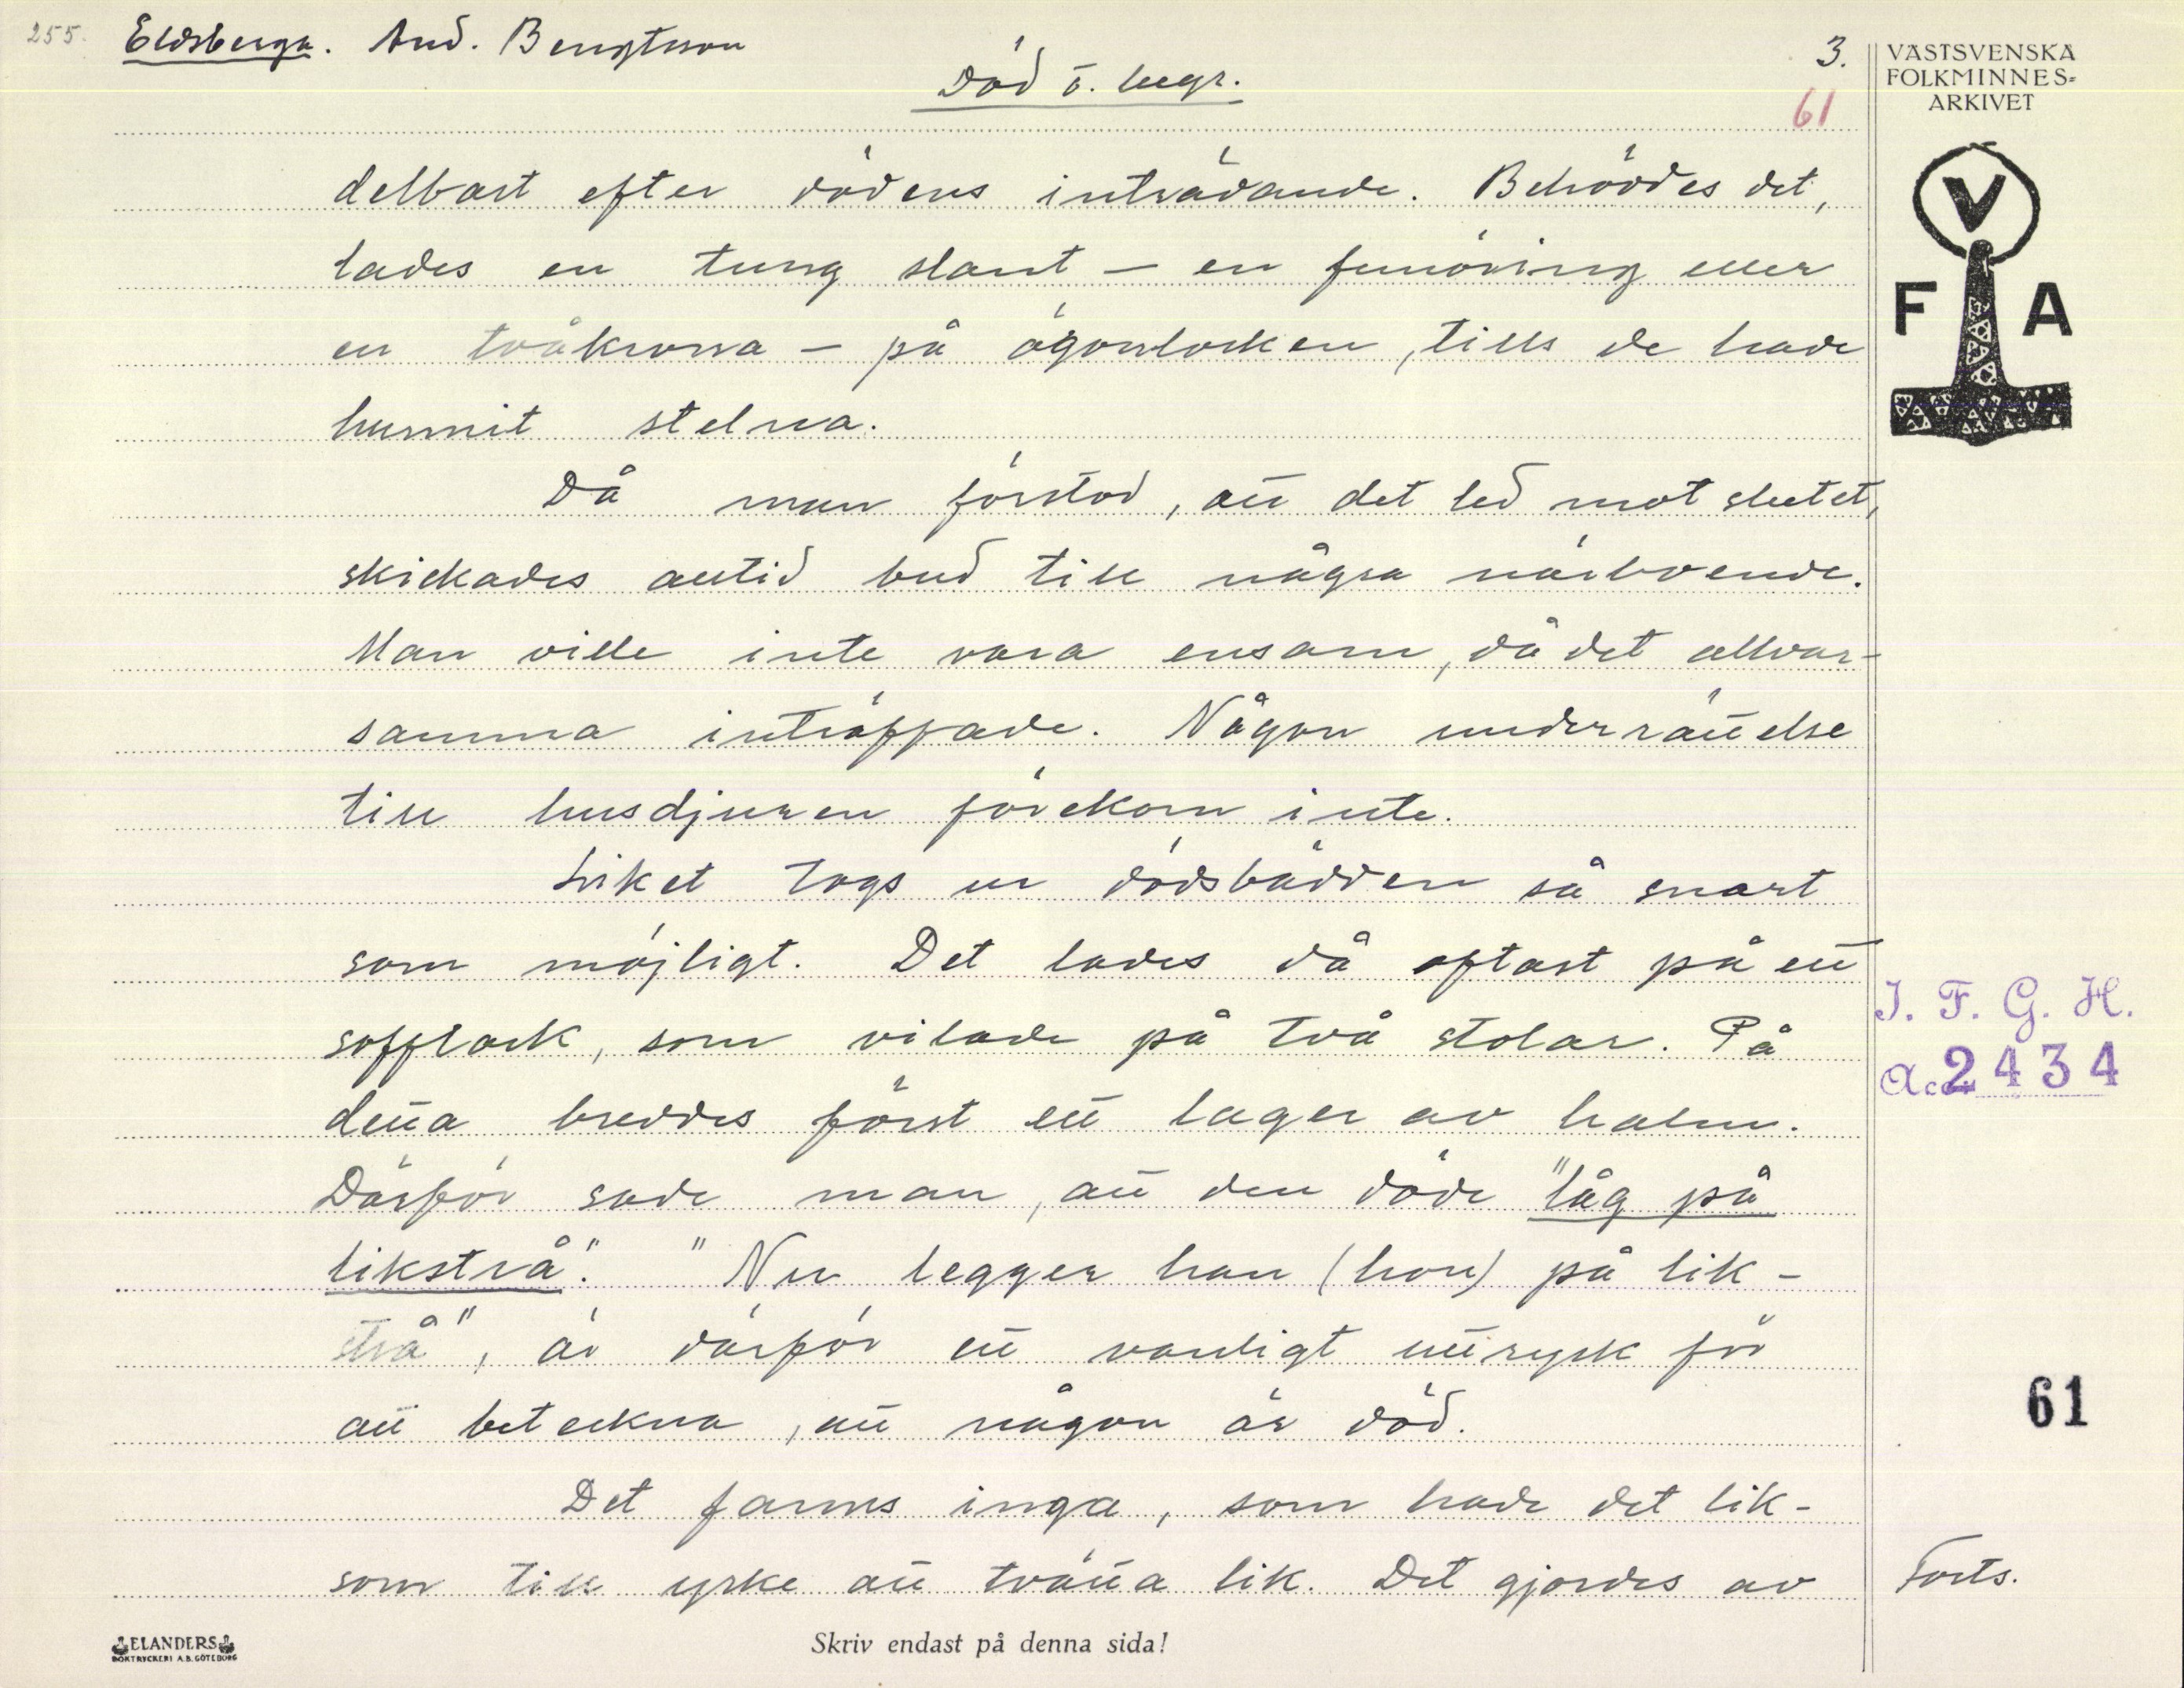 255. Eldsberga. And. Bengtsson
Död o. begr.
3.
61
VÄSTSVENSKA
FOLKMINNES=
ARKIVET
V
F A
delbart efter dödens inträdande. Behövdes det,
lades en tung slant – en femöring eller
en tvåkrona – på ögonlocken, tills de hade
hunnit stelna.
Då man förstod, att det led mot slutet,
skickades alltid bud till några närboende.
Man ville inte vara ensam, då det allvar-
samma inträffade. Någon underrättelse
till husdjuren förekom inte.
Liket togs ur dödsbädden så snart
som möjligt. Det lades då oftast på ett
sofflock, som vilade på två stolar. På
detta breddes först ett lager av halm.
Därför sade man, att den döde "låg på
likstrå". "Nu legger han (hon) på lik-
strå", är därför ett vanligt uttryck för
att beteckna, att någon är död.
Det fanns inga, som hade det lik-
som till yrke att tvätta lik. Det gjordes av
I. F. G. H.
Acc. 2434
61
Forts.
ELANDERS
BOKTRYCKERI A.B. GÖTEBORG
Skriv endast på denna sida!